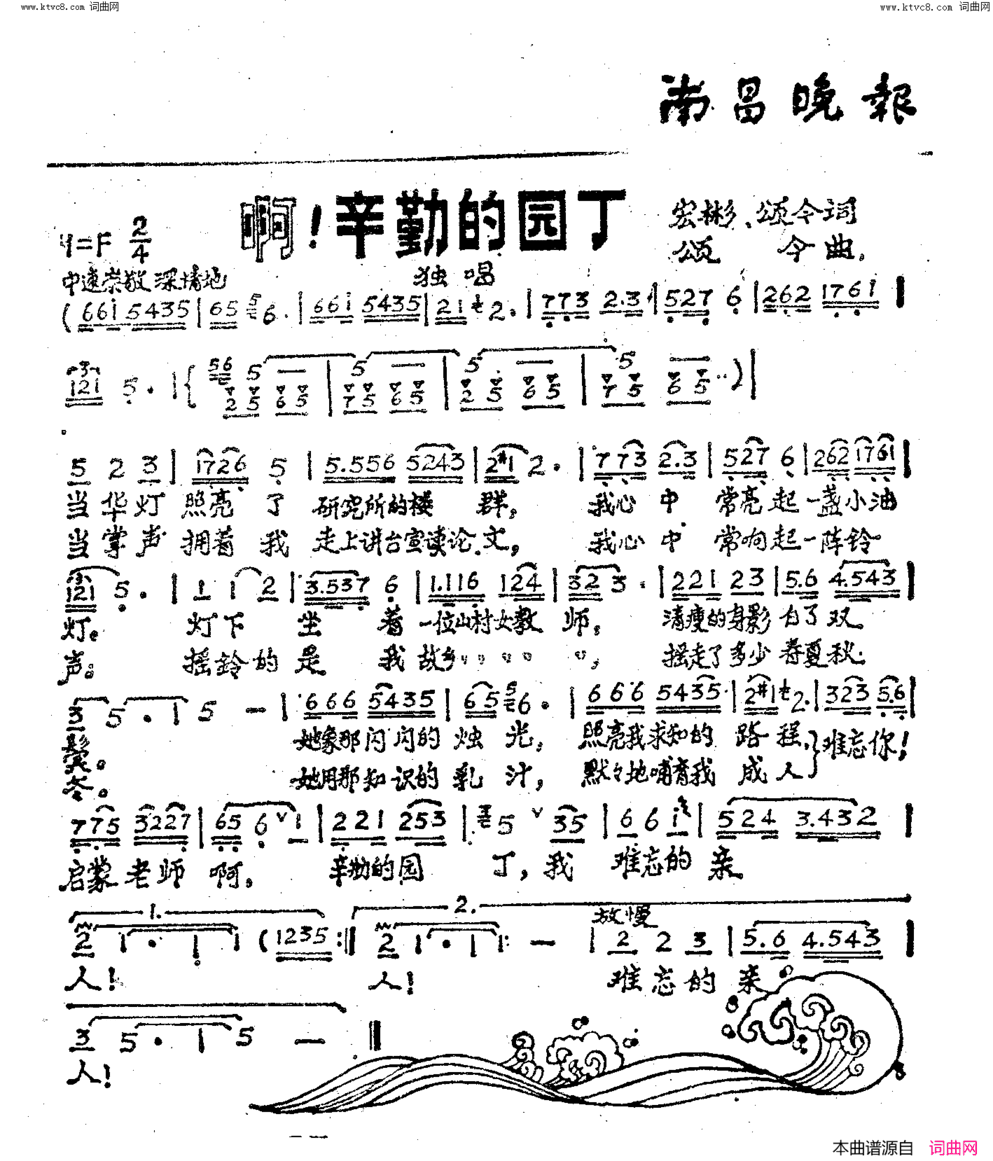 www.ktvc8.com 词曲网
www.ktvc8.com 词曲网
南昌晚報
啊!辛勤的园丁
宏彬、颂今词
颂 今曲.
1=F 2/4
中速崇敬深情地
独唱
(661 5435 | 65 5 6. | 661 5435 | 21 2. | 773 2.3 | 527 6 | 262 1761 |
3
121 5. | { 56 5 — | 5 — | 5 — | 5 — ) |
25 65 | 75 65 | 25 55 | 75 65
5 2 3 | 1726 5 | 5.556 5243 | 2#1 2. | 773 2.3 | 527 6 | 262 1761 |
当华灯 照亮 了 研究所的楼 群, 我心 中 常亮 起 一盏小油
当掌声 拥着 我 走上讲台宣读论 文, 我心 中 常响 起 一阵铃
121 5. | 1 1 2 | 3.537 6 | 1.116 124 | 323 3. | 221 23 | 5.6 4.543 |
灯。 灯下 坐 着 一位山村女教 师, 清瘦的身影 白了 双
声。 摇铃的 是 我 故乡 〃 〃 〃 〃 〃, 摇走了多少 春夏秋
3 5 . 1 5 — | 666 5435 | 65 5 6. | 666 5435 | 2#1 2. | 323 5.6 |
鬓。 她象那闪闪的 烛 光, 照亮我求知的 路 程,}难忘你!
冬。 她用那知识的 乳 汁, 默々地哺育我 成 人
775 3227 | 65 6 ∨ 1 | 221 253 | 3 5 ∨ 35 | 6 6 1 | 524 3.432 |
启蒙 老师 啊, 辛勤的园 丁,我 难忘的 亲
1. 2. 放慢
2 1 . 1 1 (1235 :‖ 2 1 . 1 1 — | 2 2 3 | 5.6 4.543 |
人! 人! 难忘的 亲
3 5 . 1 5 — ‖
人!
本曲谱源自 词曲网